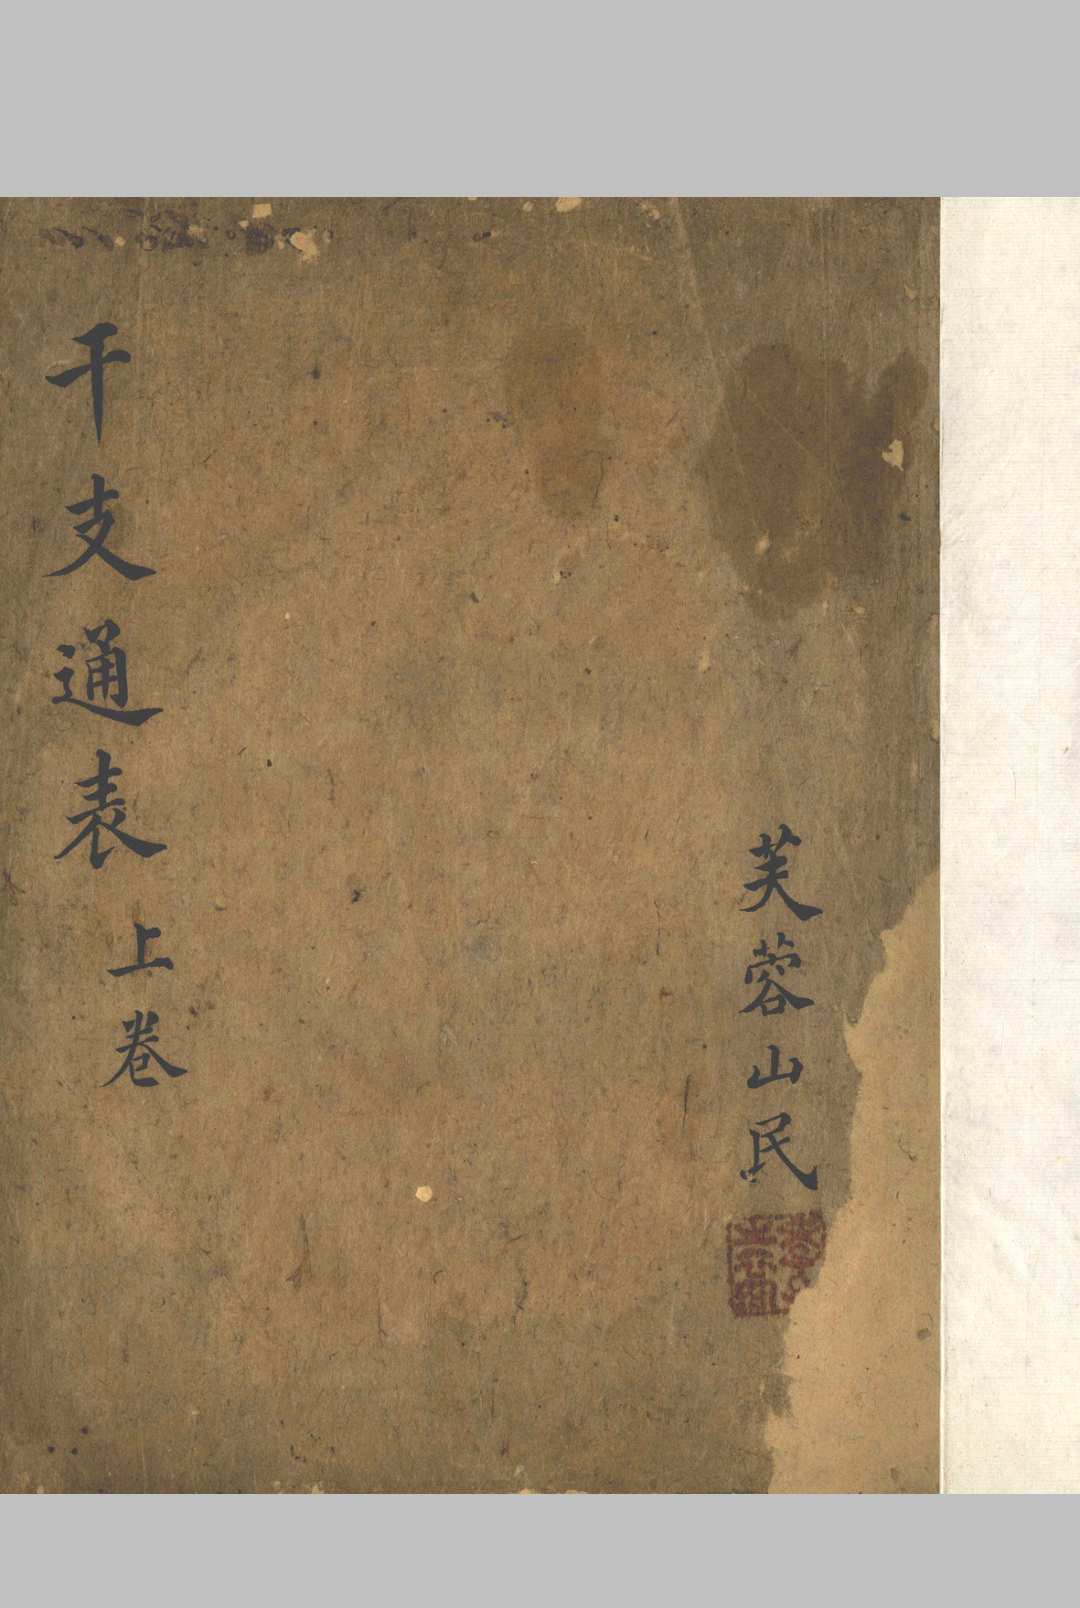 芙蓉山民
干支通表 上卷